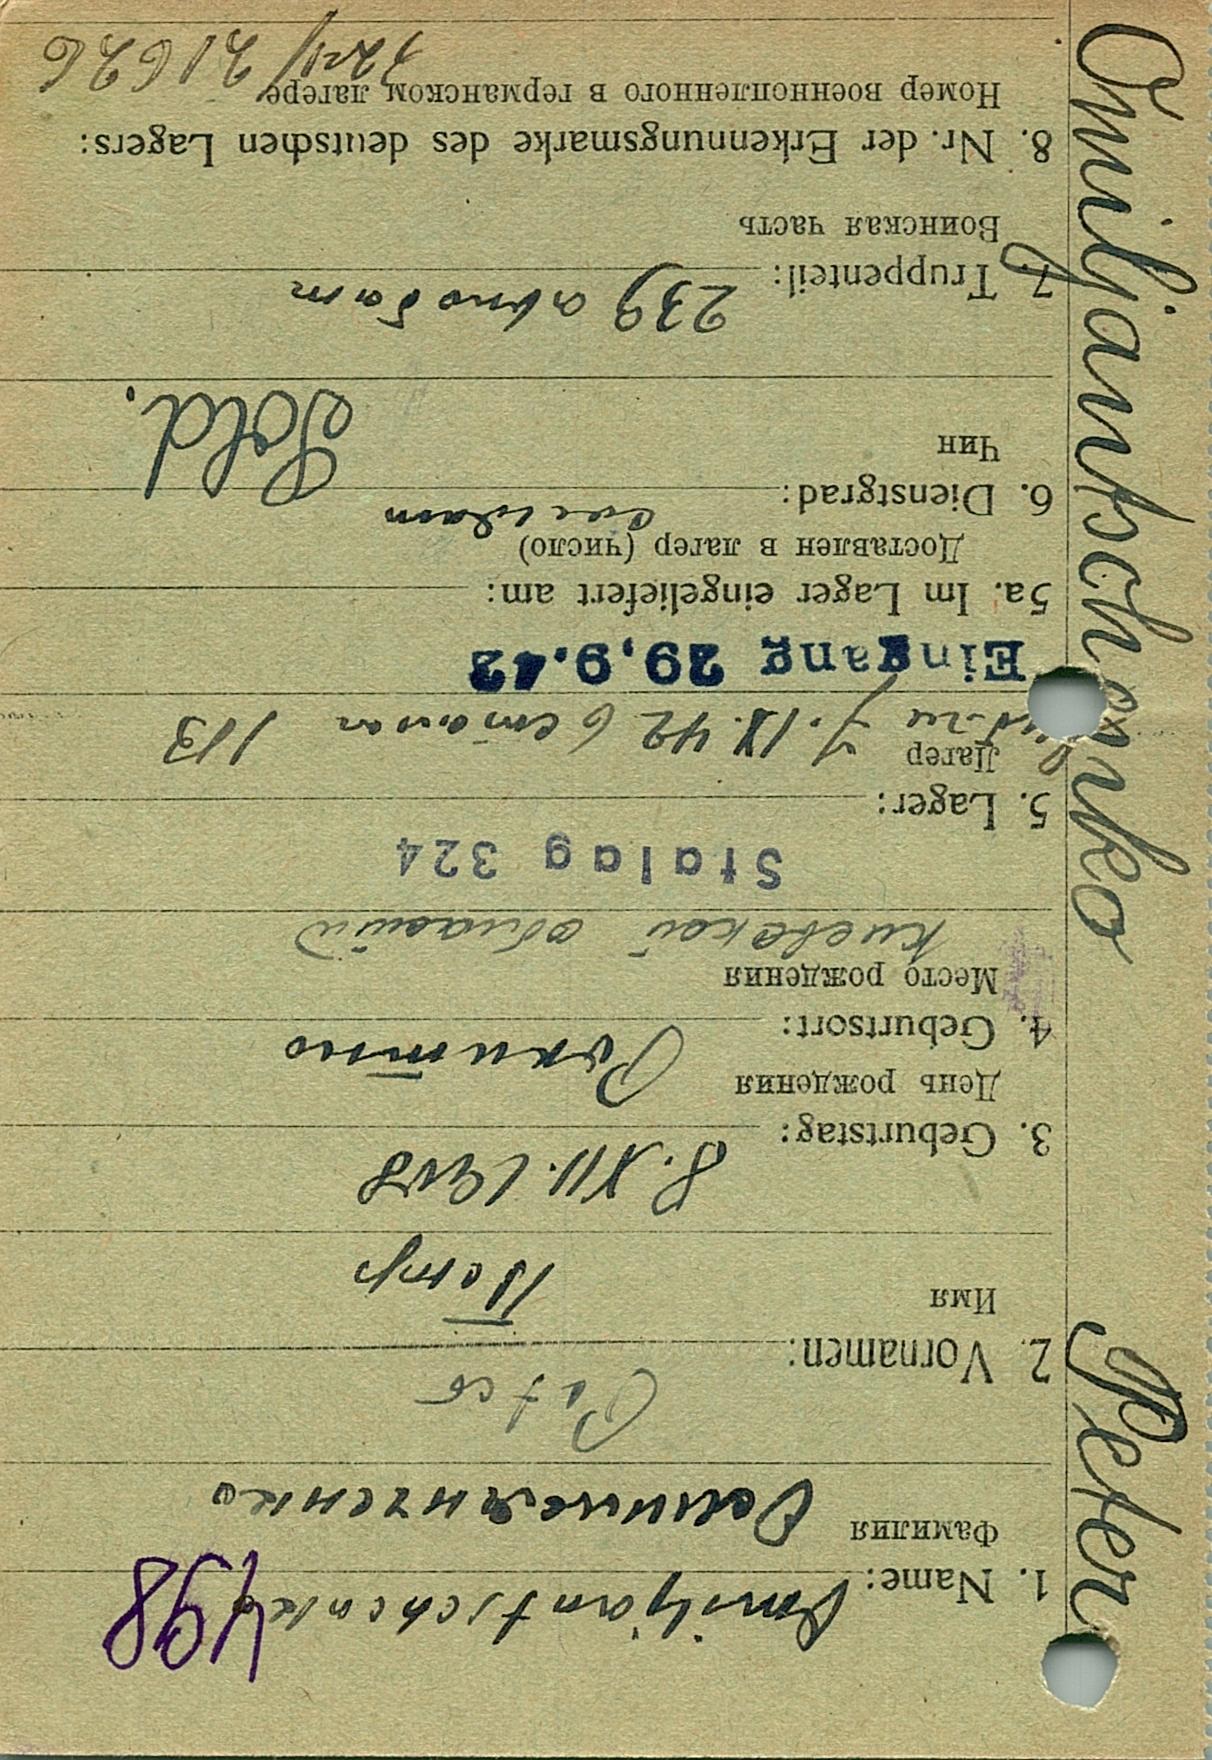 Omiljantschenko Peter
498
1. Name: Omiljantschenko
Фамилия Омильянченко
Petro
2. Vornamen:
Имя Петр
8.XII.1908
3. Geburtstag:
День рождения
Ракитно
4. Geburtsort:
Место рождения
Киевской области
Stalag 324
5. Lager:
Лагерь 7.IX.42 в 113
Eingang 29.9.42
5a. Im Lager eingeliefert am:
Доставлен в лагерь (число)
солдат
6. Dienstgrad:
Чин
Sold.
239 автобат
7. Truppenteil:
Воинская часть
8. Nr. der Erkennungsmarke des deutschen Lagers:
Номер военнопленного в германском лагере
21626